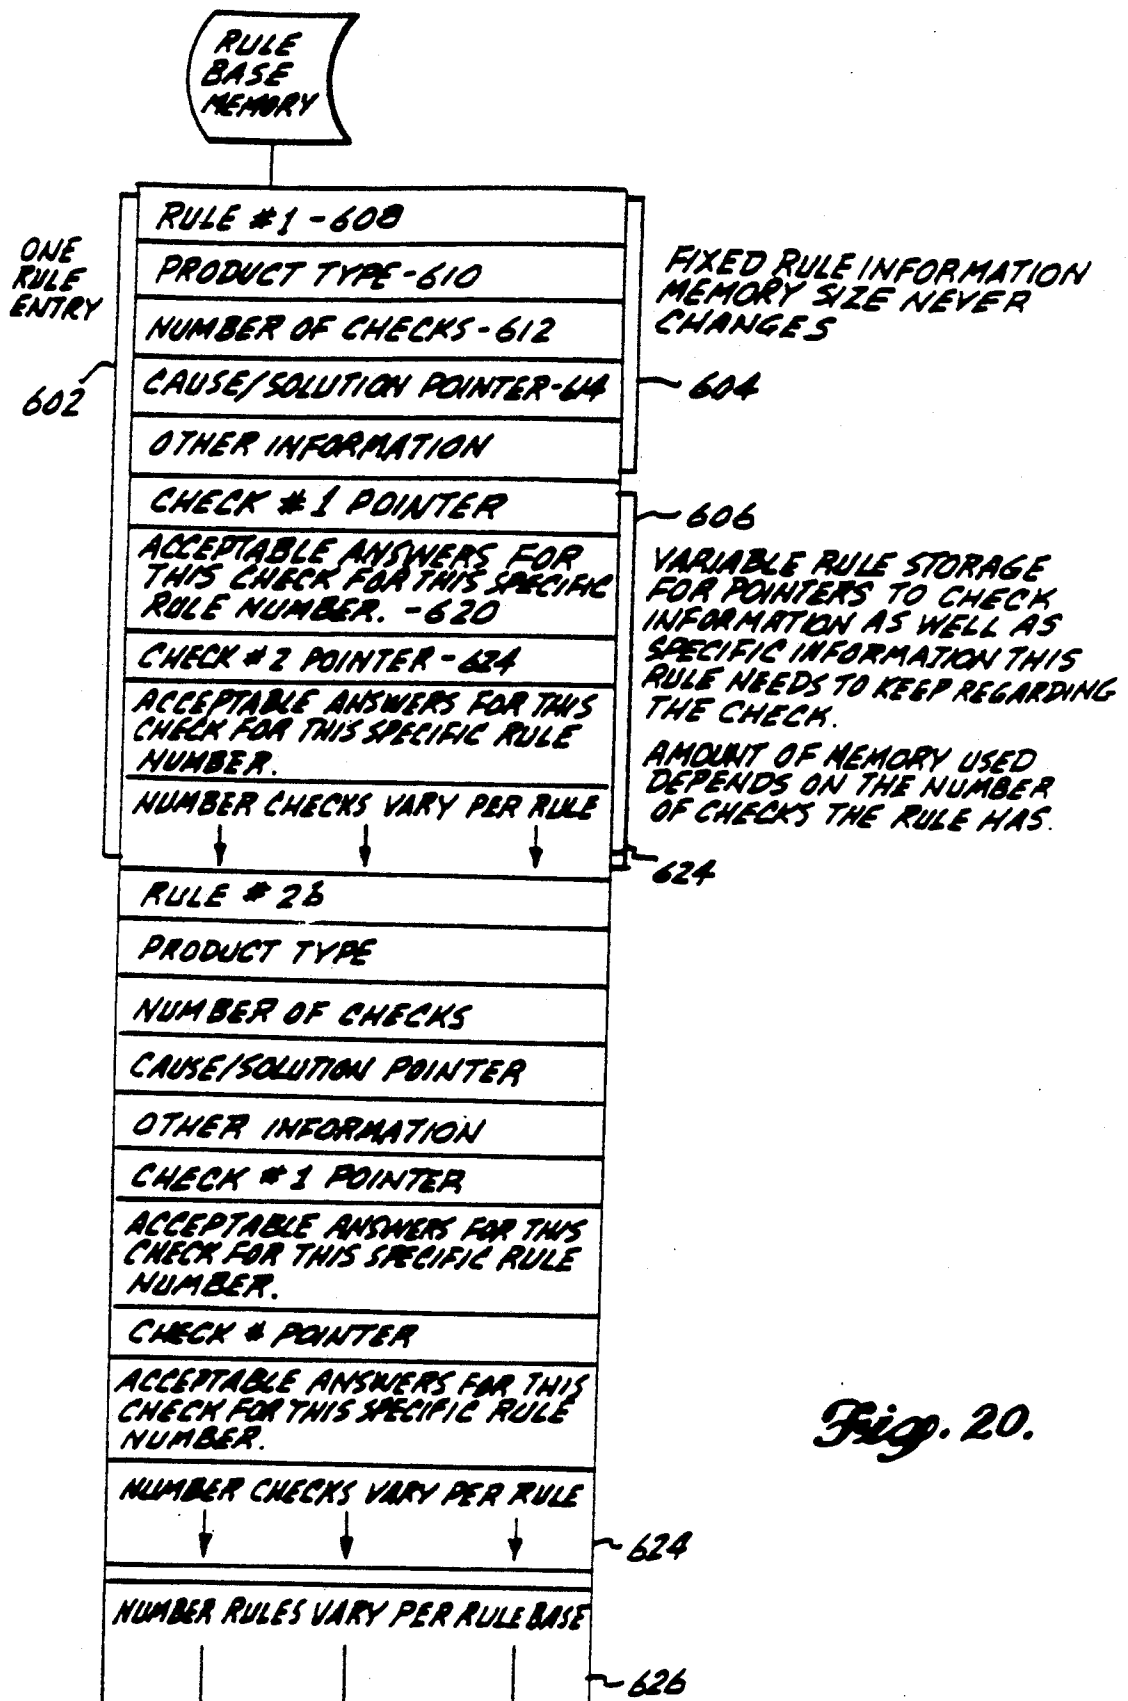 RULE
BASE
MEMORY
ONE
RULE
ENTRY
602
RULE #1 - 608
PRODUCT TYPE - 610
NUMBER OF CHECKS - 612
CAUSE/SOLUTION POINTER - 614
OTHER INFORMATION
FIXED RULE INFORMATION
MEMORY SIZE NEVER
CHANGES
604
CHECK #1 POINTER
ACCEPTABLE ANSWERS FOR
THIS CHECK FOR THIS SPECIFIC
RULE NUMBER. - 620
CHECK #2 POINTER - 624
ACCEPTABLE ANSWERS FOR THIS
CHECK FOR THIS SPECIFIC RULE
NUMBER.
NUMBER CHECKS VARY PER RULE
606
VARIABLE RULE STORAGE
FOR POINTERS TO CHECK
INFORMATION AS WELL AS
SPECIFIC INFORMATION THIS
RULE NEEDS TO KEEP REGARDING
THE CHECK.
AMOUNT OF MEMORY USED
DEPENDS ON THE NUMBER
OF CHECKS THE RULE HAS.
624
RULE # 26
PRODUCT TYPE
NUMBER OF CHECKS
CAUSE/SOLUTION POINTER
OTHER INFORMATION
CHECK #1 POINTER
ACCEPTABLE ANSWERS FOR THIS
CHECK FOR THIS SPECIFIC RULE
NUMBER.
CHECK # POINTER
ACCEPTABLE ANSWERS FOR THIS
CHECK FOR THIS SPECIFIC RULE
NUMBER.
NUMBER CHECKS VARY PER RULE
624
NUMBER RULES VARY PER RULE BASE
626
Fig. 20.